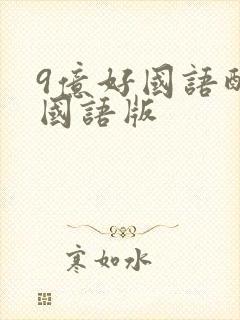 9億好國語配
國語版
寒如水